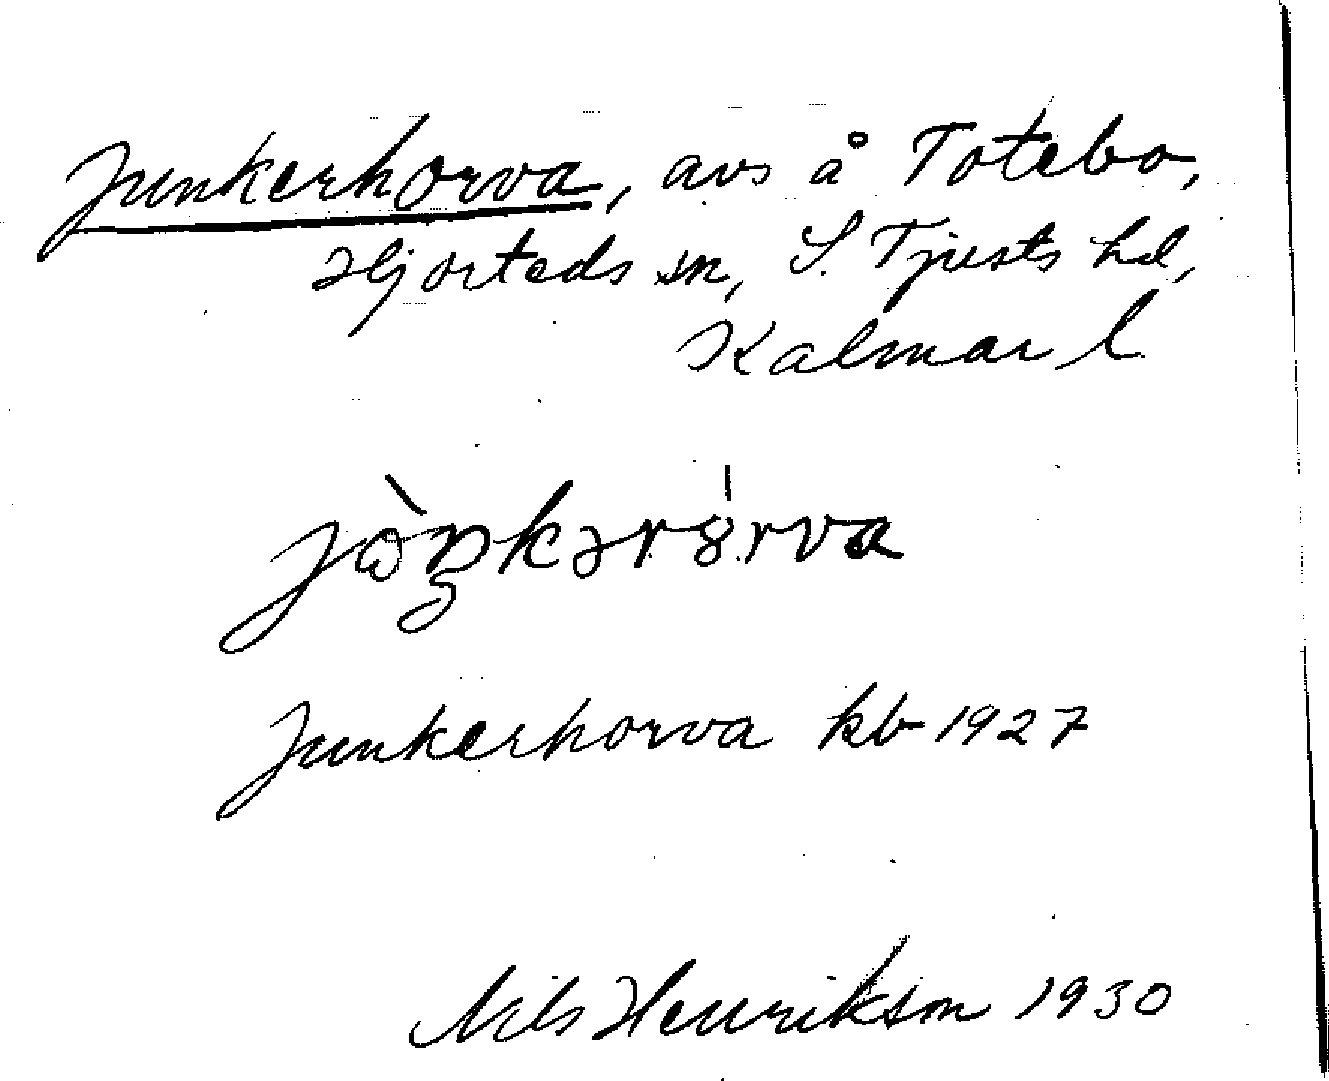 Junkerhorva, avs å Totebo,
Hjorteds sn, S. Tjusts hd,
Kalmar l
jòŋkərórva
Junkerhorva kb 1927
Nils Henrikson 1930